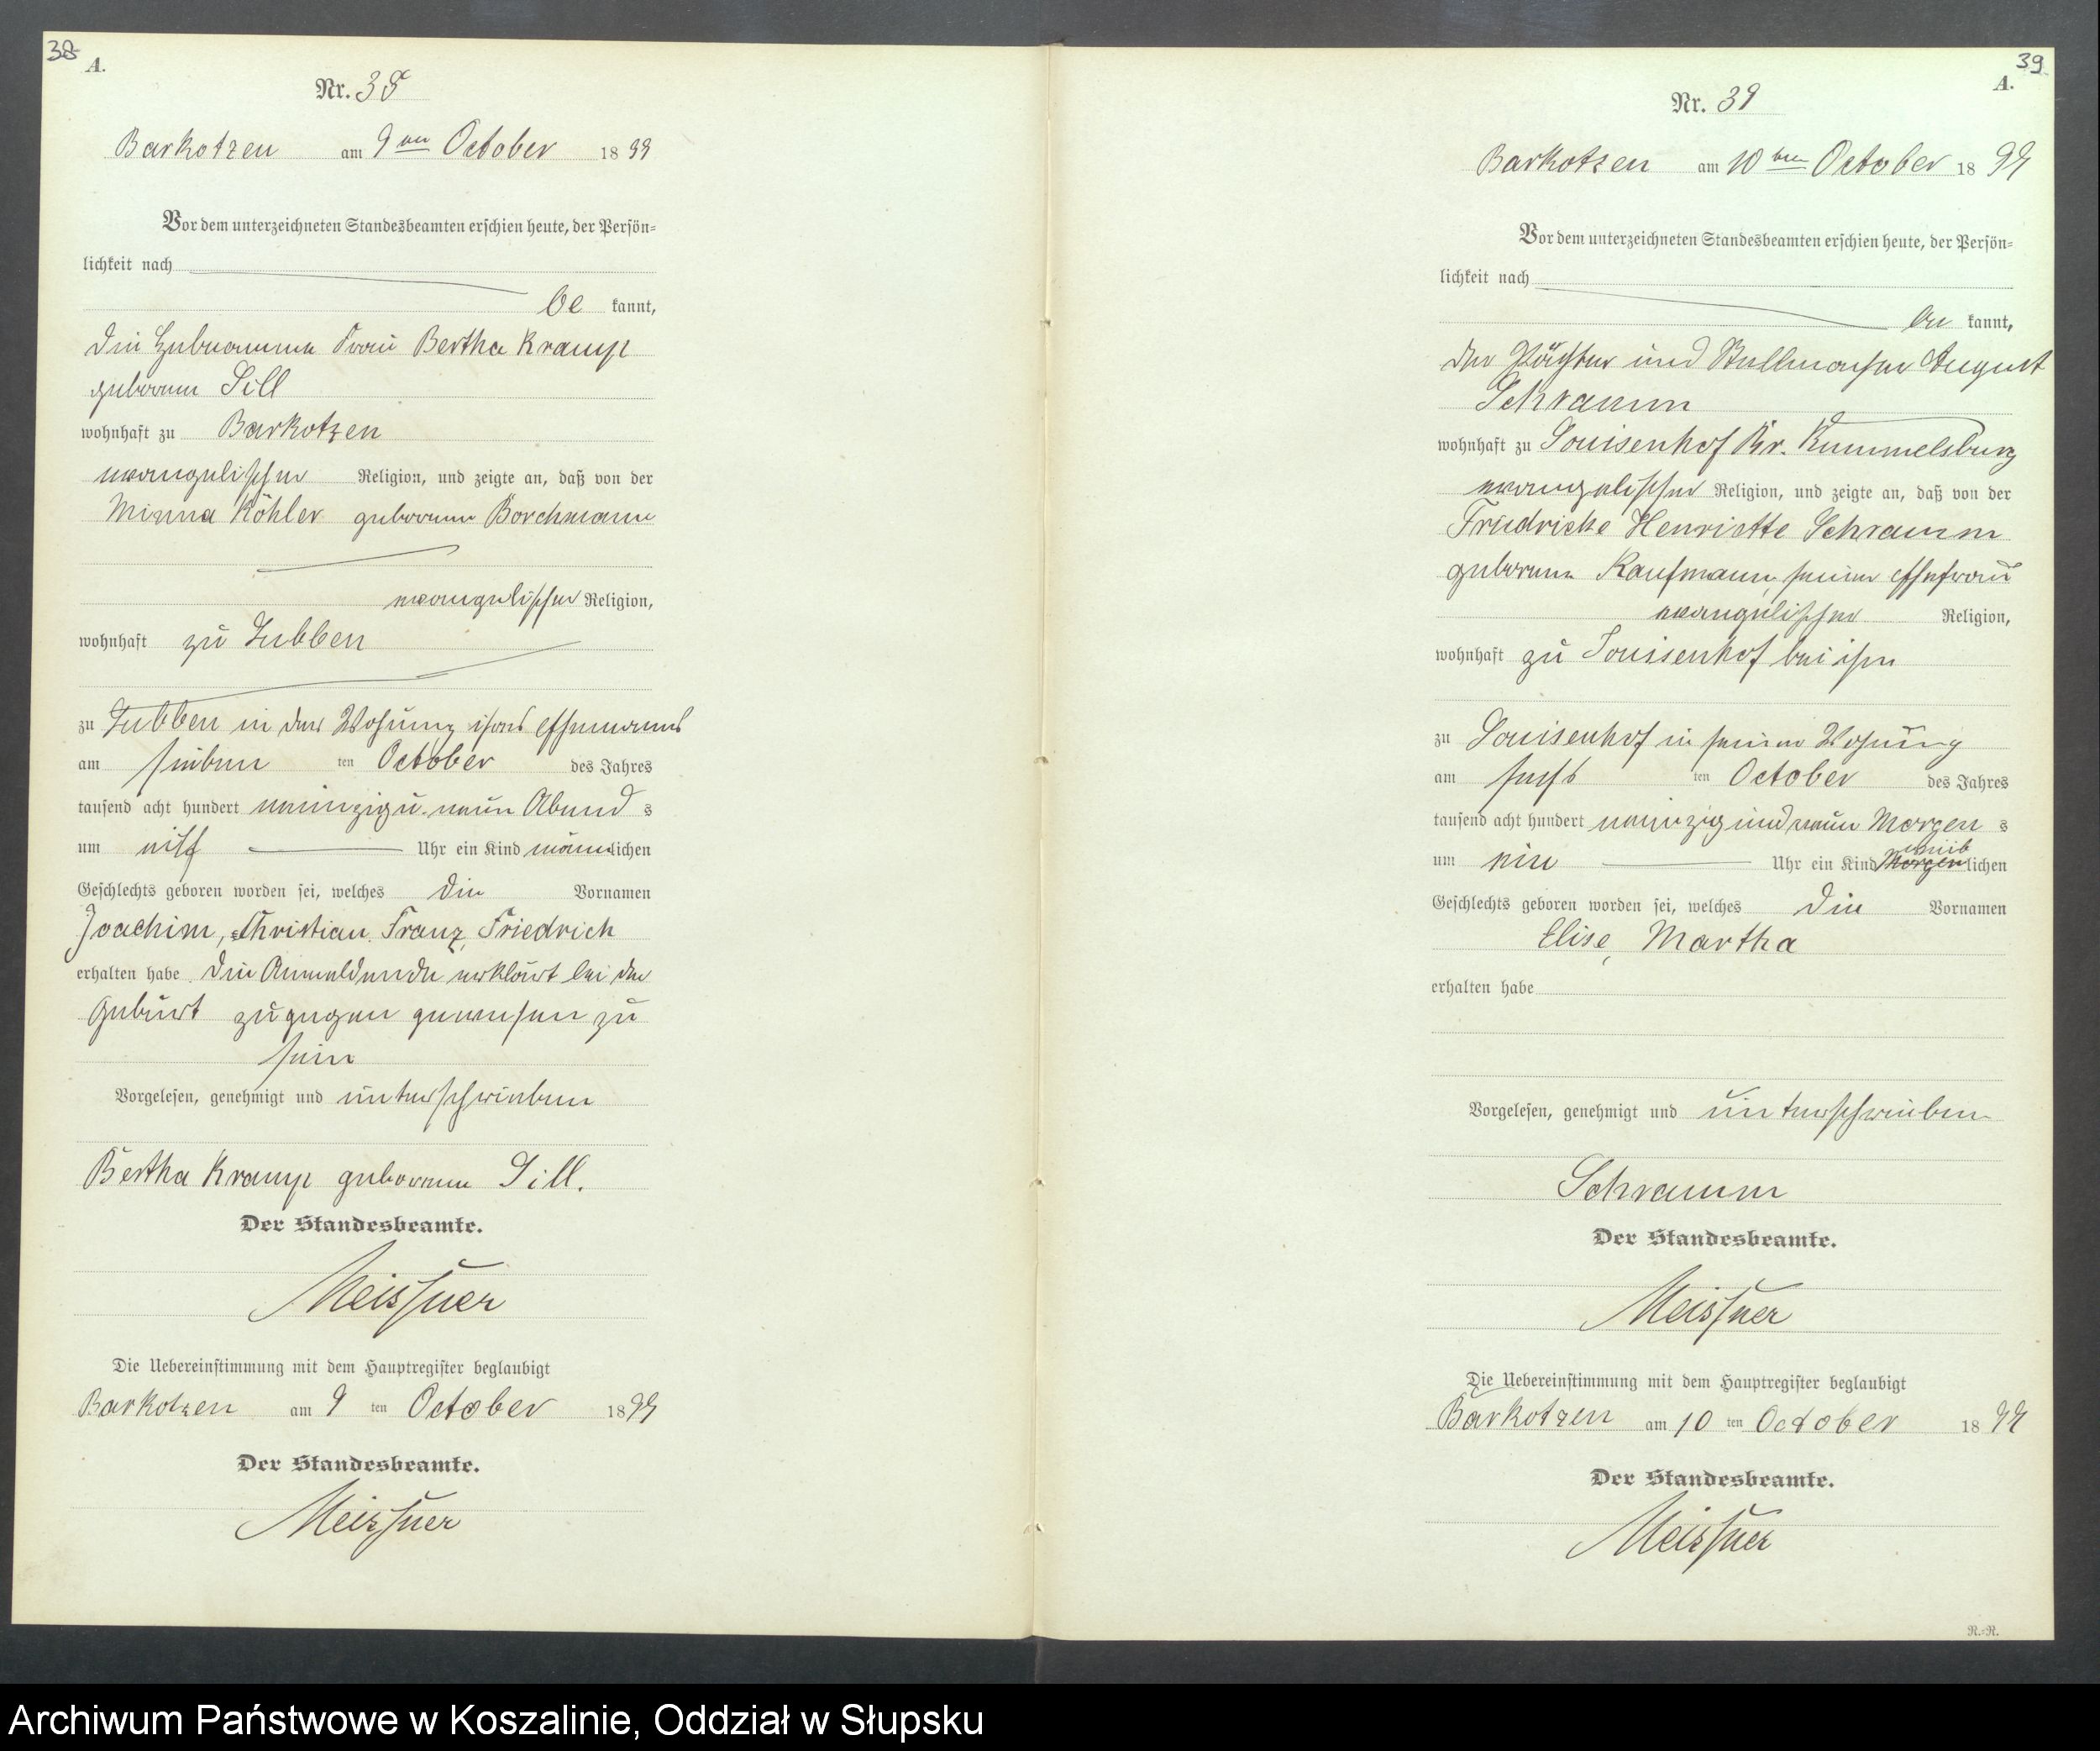 38
A.
Nr. 38
Barkotzen am 9ten October 1899
Vor dem unterzeichneten Standesbeamten erschien heute, der Persön-
lichkeit nach
be kannt,
die Hebeamme Frau Bertha Kramp
geborene Sill
wohnhaft zu Barkotzen
evangelischer Religion, und zeigte an, daß von der
Minna Köhler geborene Borchmann
evangelischer Religion,
wohnhaft zu Lubben
zu Lubben in der Wohung ihres Ehemanns
am sieben ten October des Jahres
tausend acht hundert neunzig u. neun Abend s
um elf Uhr ein Kind männlichen
Geschlechts geboren worden sei, welches die Vornamen
Joachim, Christian, Franz, Friedrich
erhalten habe. Die Anmeldende erklärt bei der
Geburt zugegen gewesen zu
sein
Vorgelesen, genehmigt und unterschrieben
Bertha Kramp geborene Sill.
Der Standesbeamte.
Meissner
Die Uebereinstimmung mit dem Hauptregister beglaubigt
Barkotzen am 9 ten October 1899
Der Standesbeamte.
Meissner
39
A.
Nr. 39
Barkotzen am 10ten October 1899
Vor dem unterzeichneten Standesbeamten erschien heute, der Persön-
lichkeit nach
be kannt,
der Pächter und Stellmacher August
Schramm
wohnhaft zu Louisenhof Kr. Rummelsburg
evangelischer Religion, und zeigte an, daß von der
Friedricke Henriette Schramm
geborene Kaufmann, seiner Ehefrau
evangelischer Religion,
wohnhaft zu Louisenhof bei ihm
zu Louisenhof in seiner Wohung
am sechs ten October des Jahres
tausend acht hundert neunzig und neun Morgen s
um ein Uhr ein Kind Morgen weib lichen
Geschlechts geboren worden sei, welches die Vornamen
Elise, Martha
erhalten habe
Vorgelesen, genehmigt und unterschrieben
Schramm
Der Standesbeamte.
Meissner
Die Uebereinstimmung mit dem Hauptregister beglaubigt
Barkotzen am 10 ten October 1899
Der Standesbeamte.
Meissner
R.=R.
Archiwum Państwowe w Koszalinie, Oddział w Słupsku